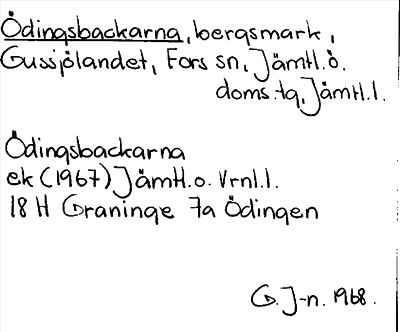 Ödingsbackarna, bergsmark,
Gussjölandet, Fors sn, Jämtl. ö.
doms.tg, Jämtl.l.
Ödingsbackarna
ek (1967) Jämtl.o. Vrnl.l.
18 H Graninge 7a Ödingen
G. J-n. 1968.